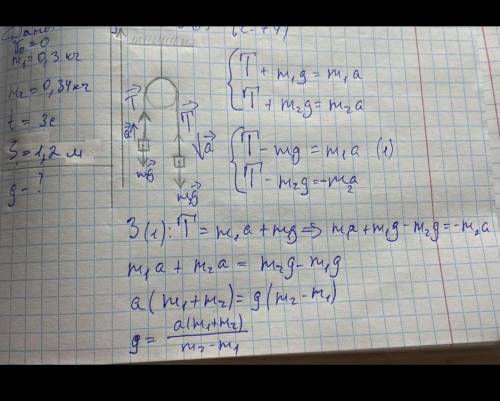 Дано:
v₀ = 0
m₁ = 0,3 кг
m₂ = 0,34 кг
t = 3с
S = 1,2 м
g - ?
T⃗
T⃗
a⃗
a⃗
mg⃗
m₂g⃗
T⃗ + m₁g⃗ = m₁a⃗
T⃗ + m₂g⃗ = m₂a⃗
T - mg = m₁a (1)
T - m₂g = -m₂a
З (1): T = m₁a + mg => m₁a + m₁g - m₂g = -m₂a
m₁a + m₂a = m₂g - m₁g
a (m₁ + m₂) = g (m₂ - m₁)
g = a(m₁+m₂) / m₂ - m₁